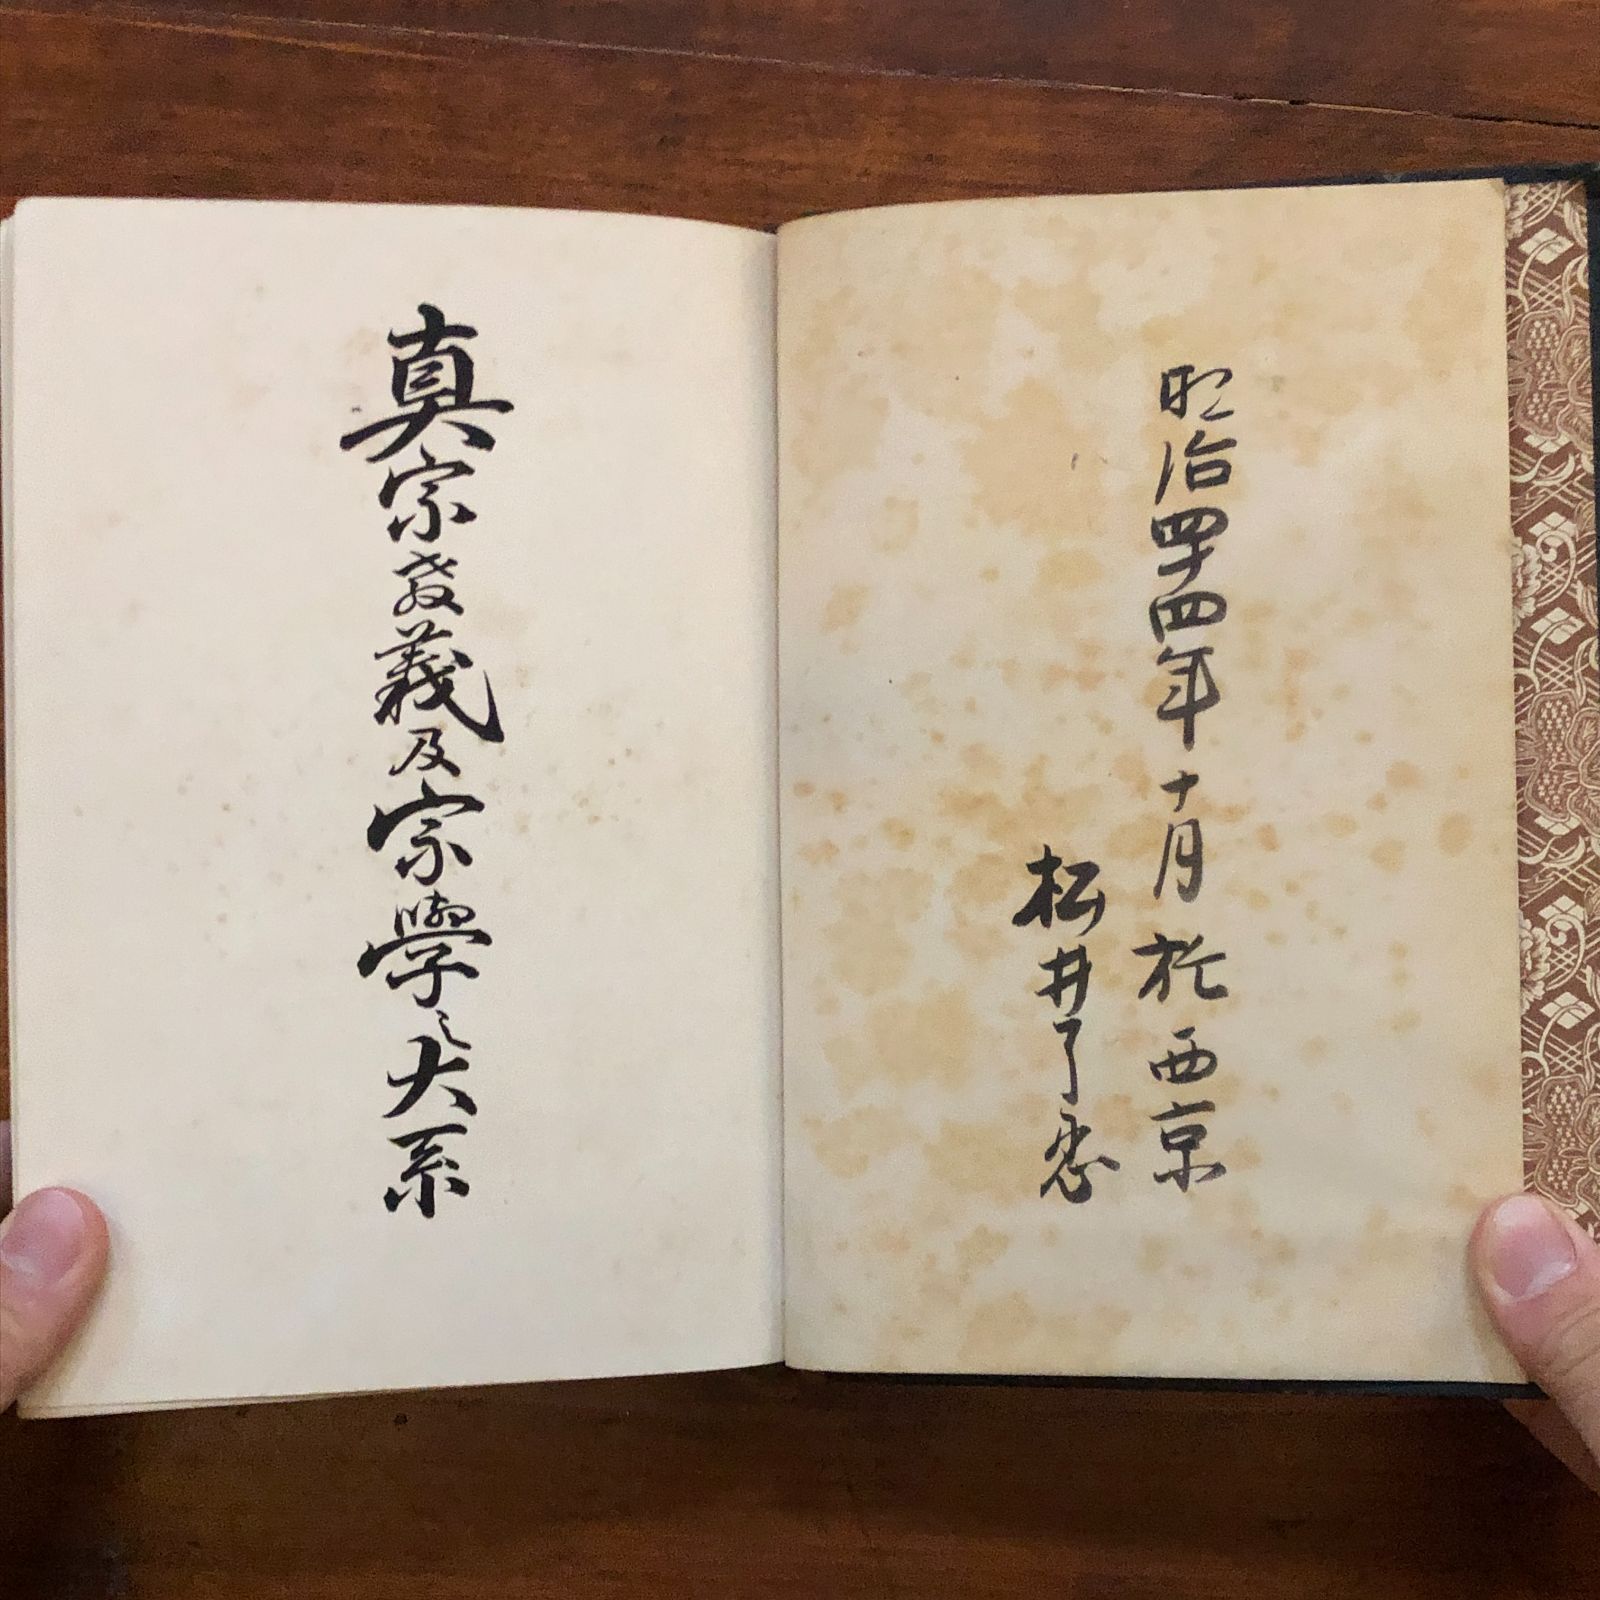 明治四十四年十月於西京
松井了恵
真宗教義及宗學之大系